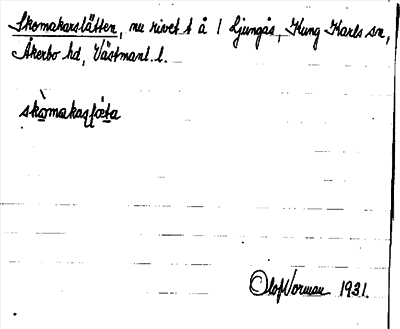 Skomakarslätten, nu rivet t å 1 Ljungås, Kung Karls sn,
Åkerbo hd, Västmanl. l.
Olof Norman 1931.